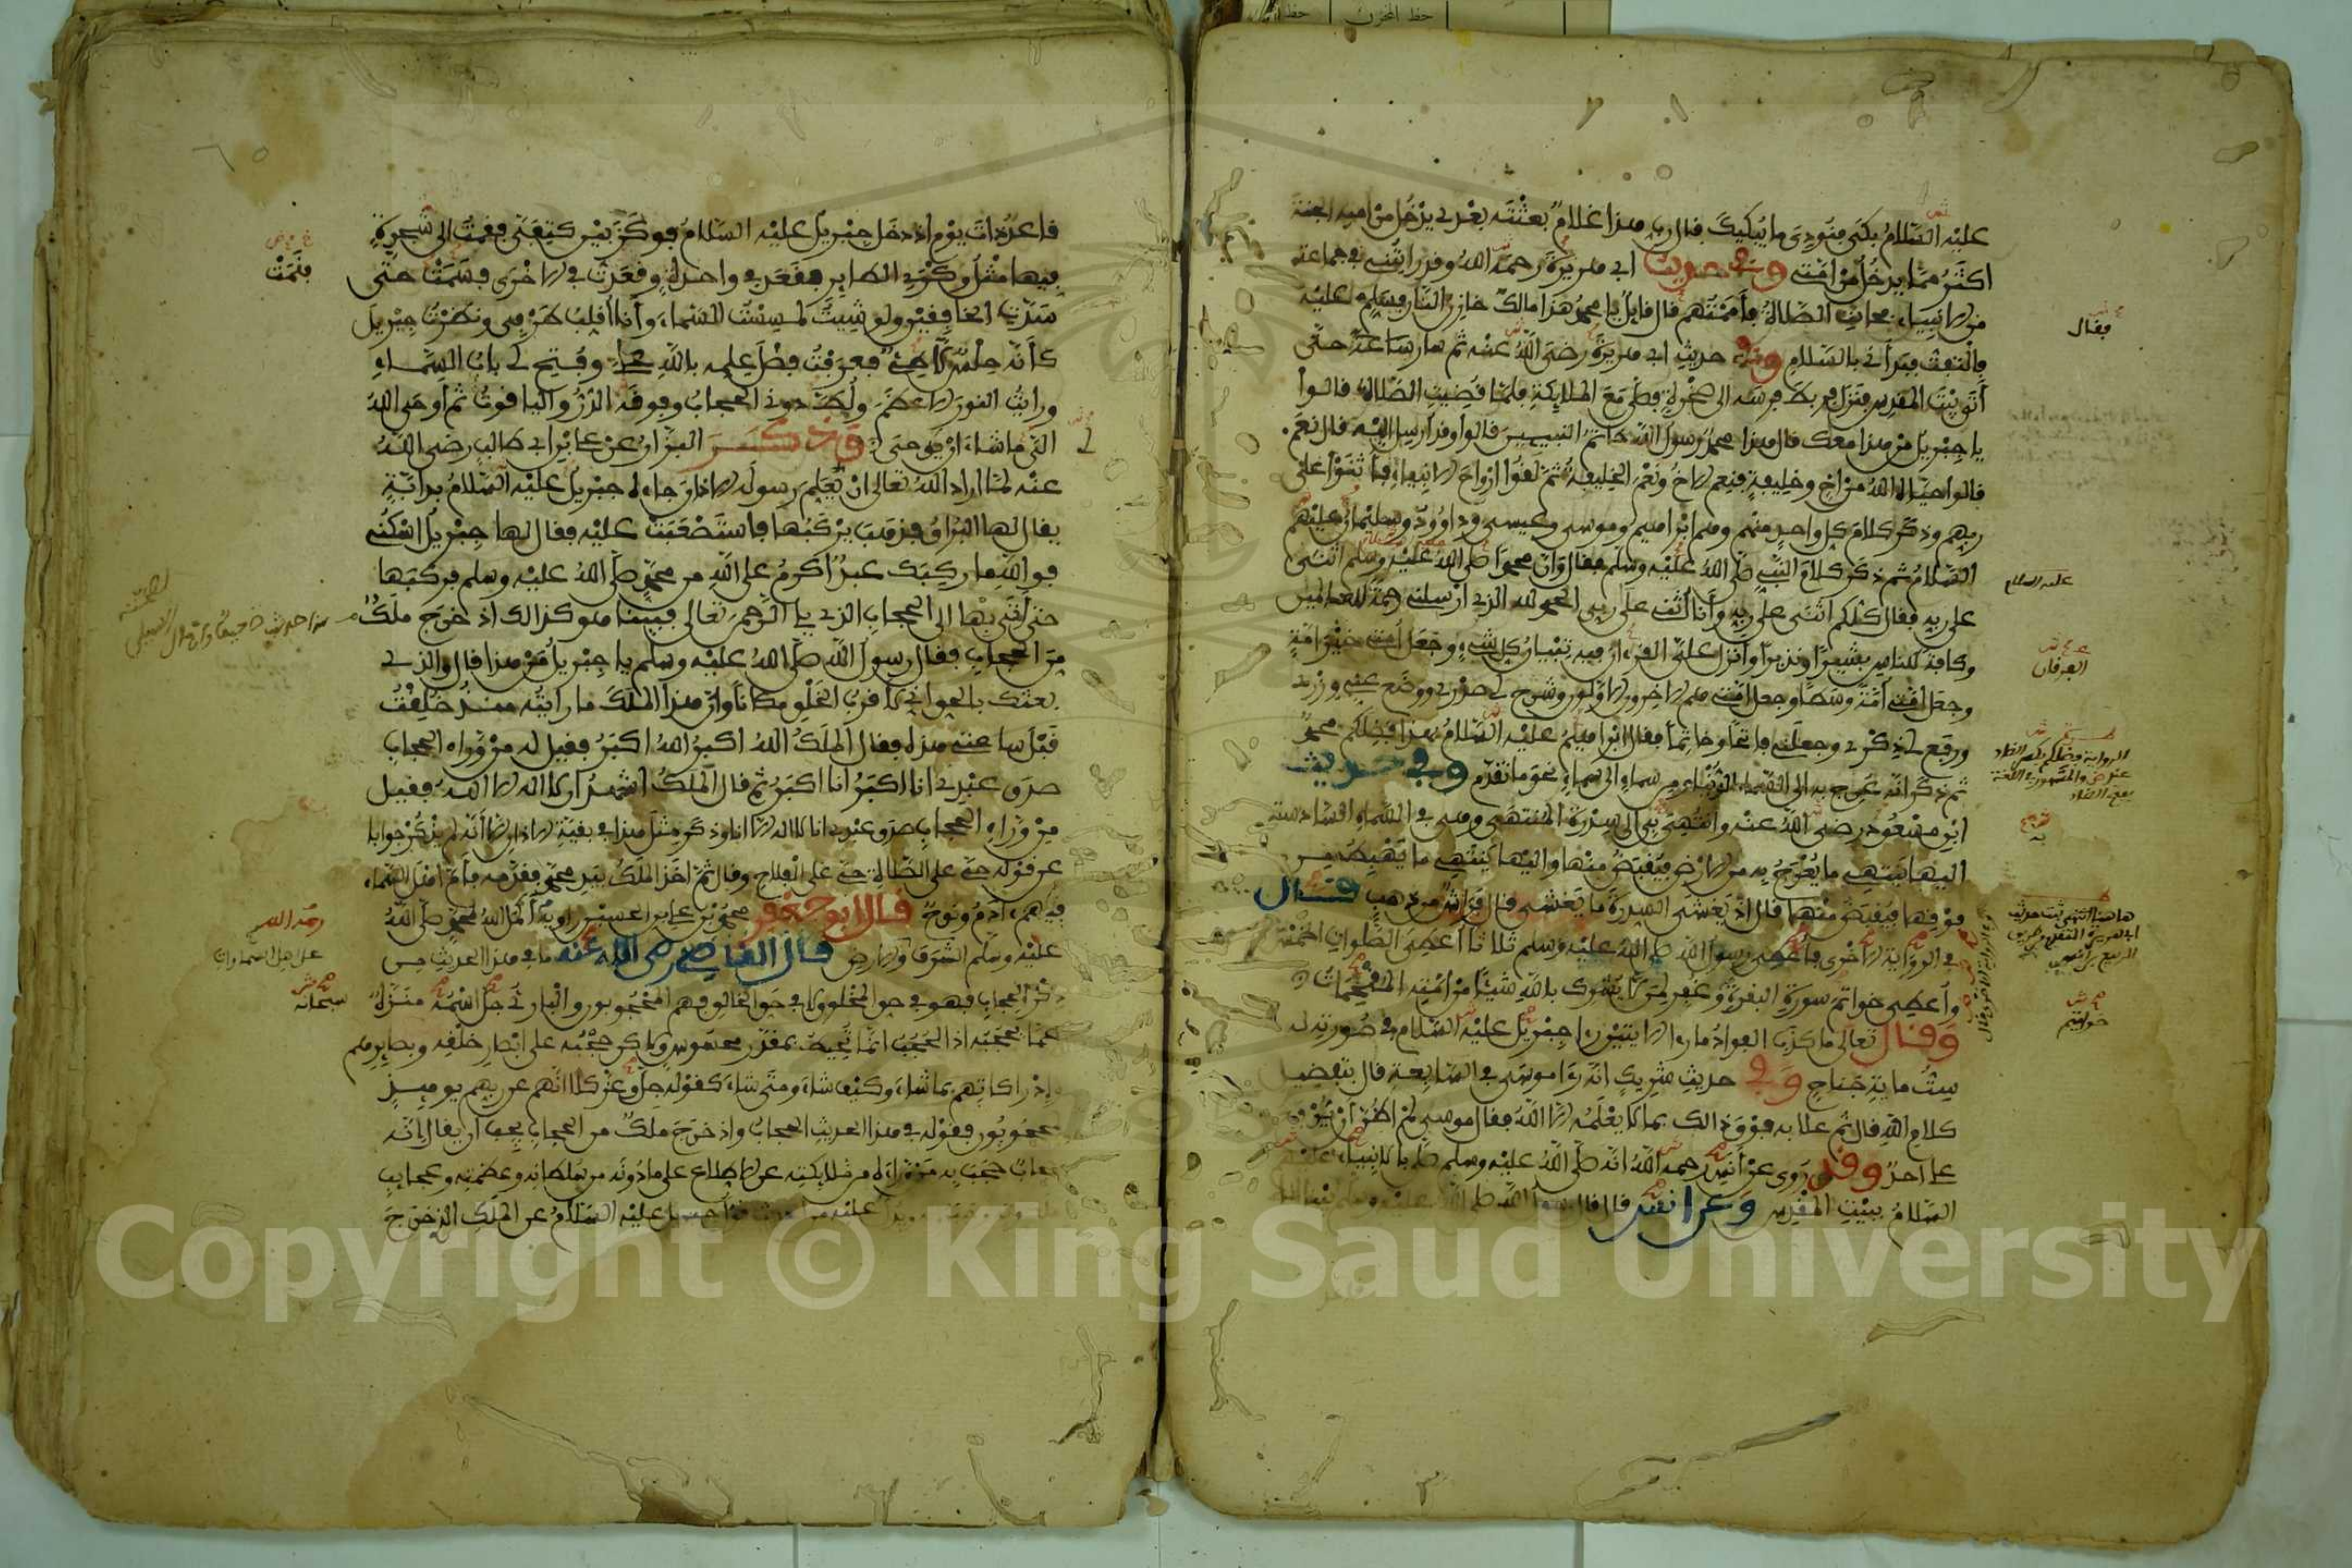 عليه السّلامُ بكَى فنُودِىَ ما يُبكيكَ قال ربّ هذا غلامٌ بعثْتَه بعْدِى يدْخُل من امته الجنة
اكثَرُ مما يدخُل من امّتى وفى حديث ابى هريرة رحمه الله وقد رايتُنى فى جماعة
من الانبياء فحانت الصّلاة فأممْتُهم فقال قايلٌ يا محمد هذا مالكٌ خازن النار فسلم عليه
فالتفتّ فبدأنى بالسّلام وفى حديث ابى هريرة رضى الله عنه ثم سار ساعة حتّى
أتى بيْتَ المقدس فنزل فربط فرسه الى صخْرة فصلّى مع الملايكة فلمّا قُضِيت الصّلاة قالوا
يا جبريل من هذا معك قال هذا محمد رسول الله خاتم النبيين قالوا وقد ارسل اليه قال نعم.
قالوا حيّاه الله من اخ وخليفة فنعم الاخ ونعم الخليفة ثم لقوا ارواح الانبياء فأثنوا على
ربهم وذكر كلام كل واحد منهم وهم ابراهيم وموسى وعيسى وداوود وسليمان عليهم
السّلام ثم ذكر كلام النبى صلّى الله عليه وسلم فقال وان محمدا صلى الله عليه وسلم اثنى
على ربه فقال كلكم اثنى على ربه وأنا أثنى على ربى الحمد لله الذى ارسلنى رحمة للعالمين
وكافة للناس بشيرا ونذيرا وانزل علىّ القرءان فيه تبيان كل شىء وجعل امتى خير امة
وجعل امتى أمّة وسطا وجعل امتى هم الاخرون وهم الاولون وشرح لى صدرى ووضع عنى وزرى
ورفع لى ذكرى وجعلنى فاتحا وخاتما فقال ابراهيم عليه السّلام بهذا فضلكم محمدٌ
ثم ذكر انه عرج به الى السّماء الدّنيا ومن سماء الى سماء نحو ما تقدم وفى حديث
ابن مسعود رضى الله عنه وانتُهى بى الى سدرة المنتهى وهى فى السّماء السّادسة
اليها ينتهى ما يُعرج به من الارض فيقبض منها واليها ينتهى ما يهبط من
فوقها فيُقبض منها قال اذ يغشى السدرة ما يغشى قال فراشٌ من ذهب قال
فى الرّواية الاخرى فأعطى رسول الله صلى الله عليه وسلم ثلاثا أعطى الصّلوات الخمْس
وأعطى خواتم سورة البقرة وغفر لمن لا يشرك بالله شيئا من امّته المقحمات
وقال تعالى ما كذب الفؤاد ما رءا الايتين رءا جبريل عليه السّلام فى صورته له
ستّ ماية جناح وفى حديث شريك انه رءا موسى فى السّابعة قال بتفضيل
كلام الله قال ثم علا به فوق ذالك بما لا يعلمه الا الله فقال موسى لم اظن ان يُرفع
علىّ احدٌ وقد روى عن أنس رحمه الله انه صلّى الله عليه وسلم صلّى بالانبياء
السّلام ببيْت المقدس وعن انس قال قال رسول الله صلى الله عليه وسلم بينا انا
فقال
عليه السلام
الفرقان
به
خواتيم
قاعدٌ ذات يوم اذ دخل جبريل عليه السّلام فوكز بين كتفىّ فقمت الى شجرة
فيها مثل وكرى الطاير فقعد فى واحدة وقعدت فى الاخرى فسمت حتى
سدت الخافقين ولو شيت لمسست السّماء وأنا أقلب طرفى ونظرت جبريل
كأنه حلسٌ لاطئ فعرفت فضل علمه بالله علىّ وفتح لى باب السّماء
ورايت النور الاعظم ولُطّ دونى الحجاب وفوقه الدرّ والياقوت ثم أوحى الله
الىّ ما شاء ان يوحى وذكر البزار عن على بن ابى طالب رضى الله
عنه لمّا اراد الله تعالى ان يعلم رسوله الاذان جاءه جبريل عليه السّلام بدابّة
يقال لها البراق فذهب يركبها فاستصعبت عليه فقال لها جبريل اسكنى
فوالله ما ركبك عبدٌ اكرم على الله من محمد صلى الله عليه وسلم فركبها
حتى أتى بها الى الحجاب الذى يلى الرّحمن تعالى فبينا هو كذالك اذ خرج ملكٌ
من الحجاب فقال رسول الله صلى الله عليه وسلم يا جبريل من هذا قال والذى
بعثك بالحق انى لأقرب الخلق مكانا وان هذا الملك ما رايته منذ خلقت
قبل ساعتى هذه فقال الملك الله اكبر الله اكبر فقيل له من وراء الحجاب
صدق عبدى انا اكبر أنا اكبر ثم قال الملك اشهد ان لا اله الا الله فقيل
من وراء الحجاب صدق عبدى انا لا اله الا انا وذكر مثل هذا فى بقيّة الاذان الا أنه لم يذكر جوابا
عن قوله حىّ على الصّلاة حىّ على الفلاح وقال ثم اخذ الملك بيد محمد فقدّمه فأمّ أهل السّماء
فيهم ءادم ونوح قال ابو جعفر محمد بن على بن الحسين راويه أكمل الله لمحمد صلّى الله
عليه وسلم الشرف والارض قال القاضى رضى الله عنه ما فى هذا الحديث من
ذكر الحجاب فهو فى حق المخلوق لا فى حق الخالق فهم المحجوبون والبارى جلّ اسمه منزّه
عمّا يحجبه اذ الحجب انما تحيط بمقدر محسوس ولاكن حجبه على ابصار خلقه وبصايرهم
وإدراكاتهم بما شاء وكيف شاء ومتى شاء كقوله جلّ وعزّ كلا انهم عن ربهم يوميذ
لمحجوبون فقوله فى هذا الحديث الحجاب واذ خرج ملكٌ من الحجاب يجب ان يقال انه
حجابٌ حجب به من وراءه من ملايكته عن الاطلاع على ما دونه من سلطانه وعظمته وعجايب
عليه السّلام عن الملك الذى خرج
فنمت
لى
رحمه الله
على اهل السماوات
سبحانه
Copyright © King Saud University